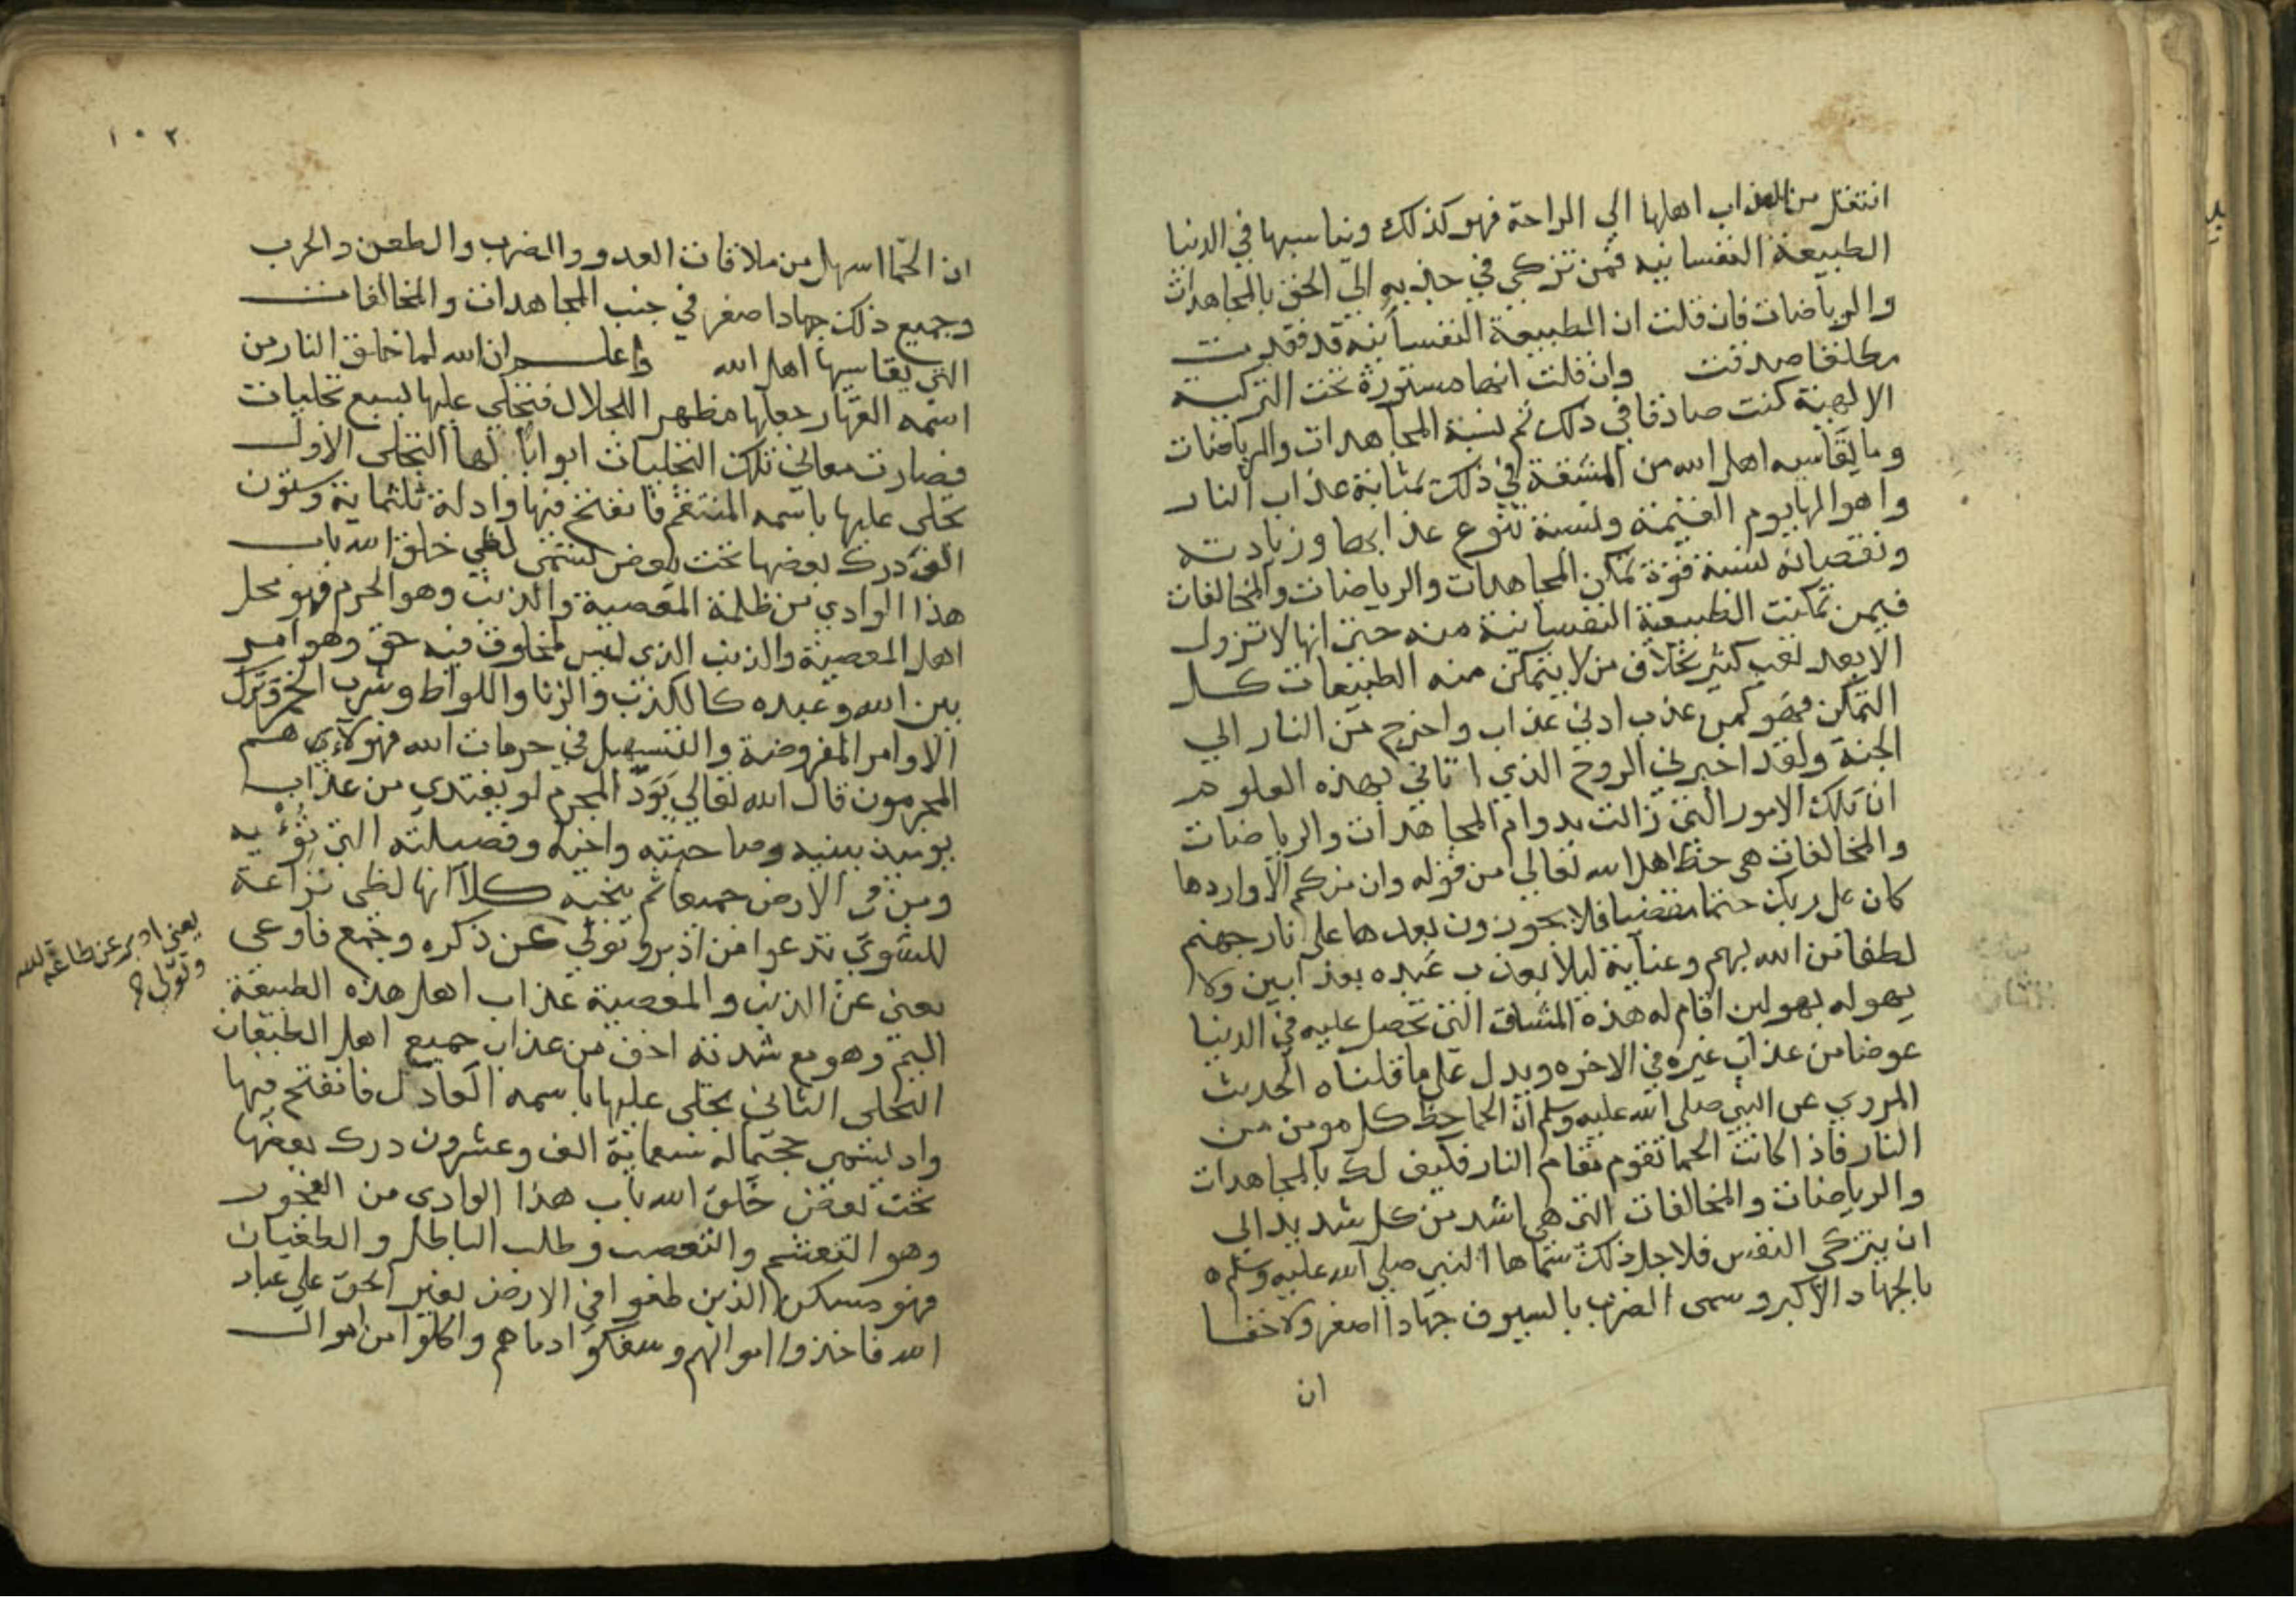 انتقل من العذاب اهلها الي الراحة فهو كذلك ويناسبها في الدنيا
الطبيعة النفسانيه فمن تزكي في جذبه الي الحق بالمجاهدات
والرياضات فان قلت ان الطبيعة النفسانيه قد فقدت
مطلقا صدقت وان قلت انها مستورة تحت التزكية
الالهية كنت صادقا في ذلك ثم نسبة المجاهدات والرياضات
وما يقاسيه اهل الله من المشقة في ذلك بمثابة عذاب النار
واهوالها يوم القيمة ونسبة تنوع عذابها وزيادته
ونقصانه لنسبة قوة تمكن المجاهدات والرياضات والمخالفات
فيمن تمكنت الطبيعة النفسانية منه حتي انها لا تزول
الا بعد تعب كثير بخلاف من لا يتمكن منه الطبيعات كل
التمكن فهو كمن عذب ادني عذاب واخرج من النار الي
الجنة ولقد اخبرني الروح الذي اتاني بهذه العلوم
ان تلك الامور التي زالت بدوام المجاهدات والرياضات
والمخالفات هي حظ اهل الله تعالي من قوله وان منكم الا واردها
كان علي ربك حتما مقضيا فلا يجوزون بعدها علي نار جهنم
لطفا من الله بهم وعناية ليلا يعذب عبده بعذابين ولا
يهوله بهولين اقام له هذه المشاق التي تحصل عليه في الدنيا
عوضا من عذاب غيره في الاخره ويدل علي ما قلناه الحديث
المروي عن النبي صلي الله عليه وسلم ان الحما حظ كل مومن من
النار فاذا كانت الحما تقوم مقام النار فكيف لك بالمجاهدات
والرياضات والمخالفات التي هي اشد من كل شديد الي
ان يتزكي النفس فلاجل ذلك سماها النبي صلي الله عليه وسلم
بالجهاد الاكبر وسمى الضرب بالسيوف جهادا اصغر ولا خفا
ان
١٠٢
ان الحما اسهل من ملاقات العدو والضرب والطعن والحرب
وجميع ذلك جهاد اصغر في جنب المجاهدات والمخالفات
التي يقاسيها اهل الله واعلم ان الله لما خلق النار من
اسمه القهار جعلها مظهر الجلال فتجلي عليها بسبع تجليات
فصارت معاني تلك التجليات ابوابا لها التجلى الاول
تجلى عليها باسمه المنتقم فانفتح فيها واد له ثلثماية وستون
الف درك بعضها تحت بعض تسمى لظي خلق الله باب
هذا الوادي من ظلمة المعصية والذنب وهو الجرم فهو محل
اهل المعصية والذنب الذي ليس لمخلوق فيه حق وهو امر
بين الله وعبده كالكذب والزنا واللواط وشرب الخمر وترك
الاوامر المفروضة والتسهيل في حرمات الله فهولاي هم
المجرمون قال الله تعالي يود المجرم لو يفتدي من عذاب
يوميذ ببنيه وصاحبته واخيه وفصيلته التي تؤيه
ومن في الارض جميعا ثم ينجيه كلا انها لظي نزاعة
للشوي تدعوا من ادبر وتولي عن ذكره وجمع فاوعي
يعني ادبر عن طاعة الله
وتولي
يعني عن الذنب والمعصية عذاب اهل هذه الطبيعة
اليم وهو مع شدته اخف من عذاب جميع اهل الطبقات
التجلى الثاني تجلى عليها باسمه العادل فانفتح فيها
واد يسمى جحيما له سبعماية الف وعشرون درك بعضها
تحت بعض خلق الله باب هذا الوادي من الفجور
وهو التغشم والتعصب وطلب الباطل والطغيان
فهو مسكن الذين طغوا في الارض بغير الحق علي عباد
الله فاخذوا اموالهم وسفكوا دماهم واكلوا من اموال